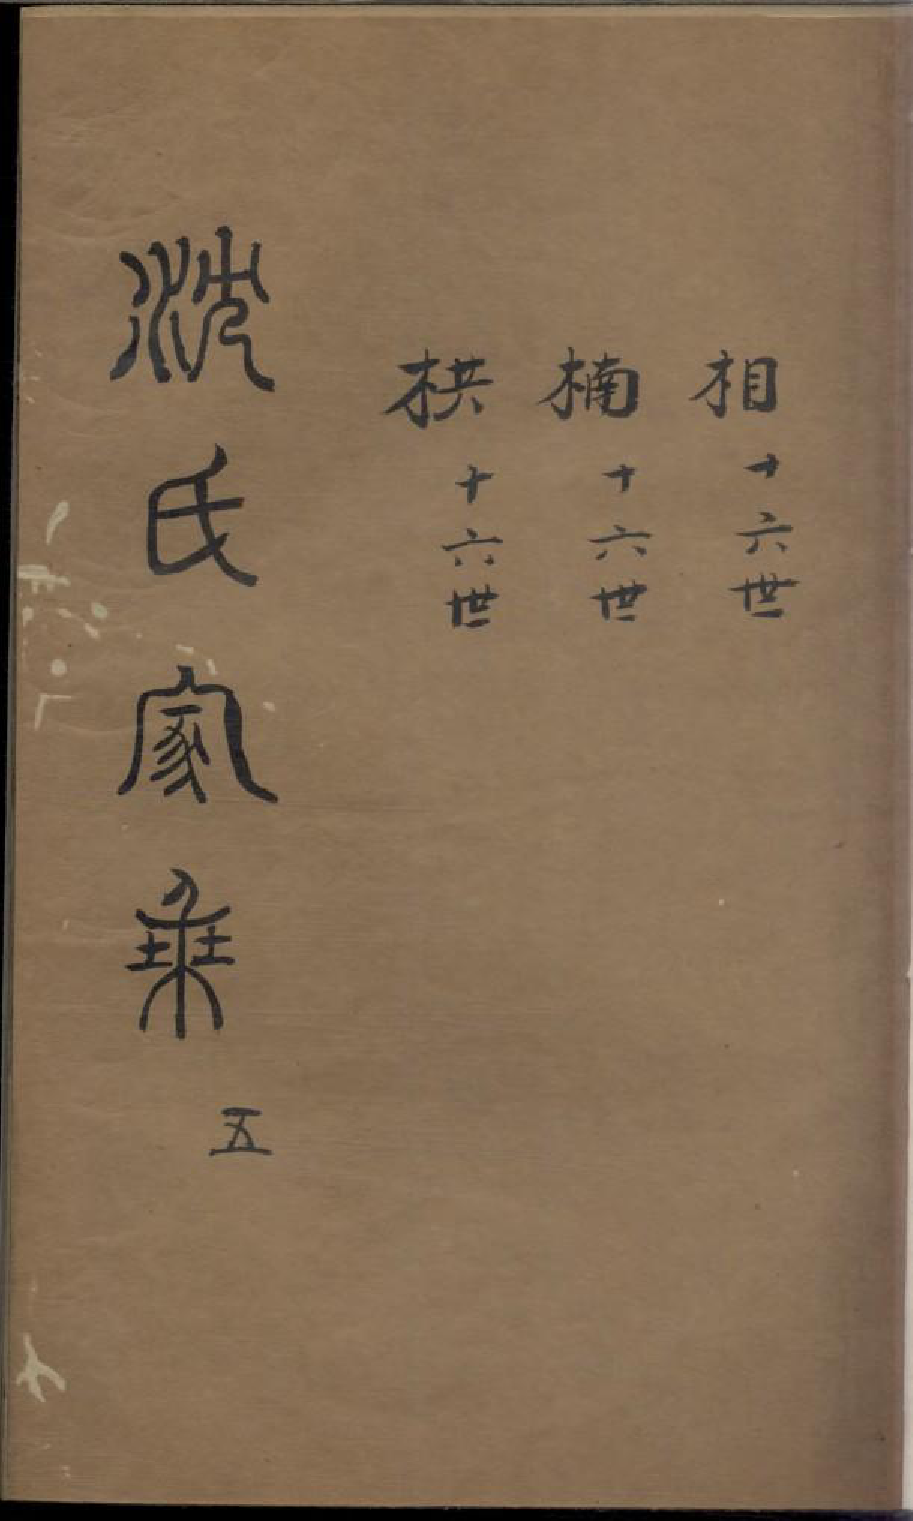 相十六世
楠十六世
栱十六世
沈氏家乘
五